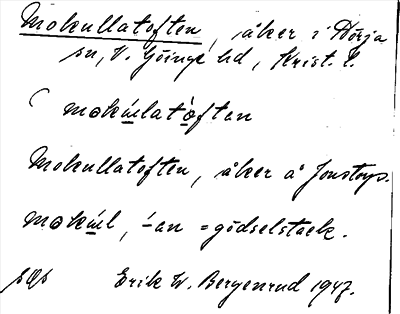 Mokullatoften, åker i Dörja
sn, V. Göinge hd, Krist. l.
mokúlatòftan
Mokullatoften, åker å Jonstorp.
mokúl, -an = gödselstack.
Erik W. Bergenrud 1947.